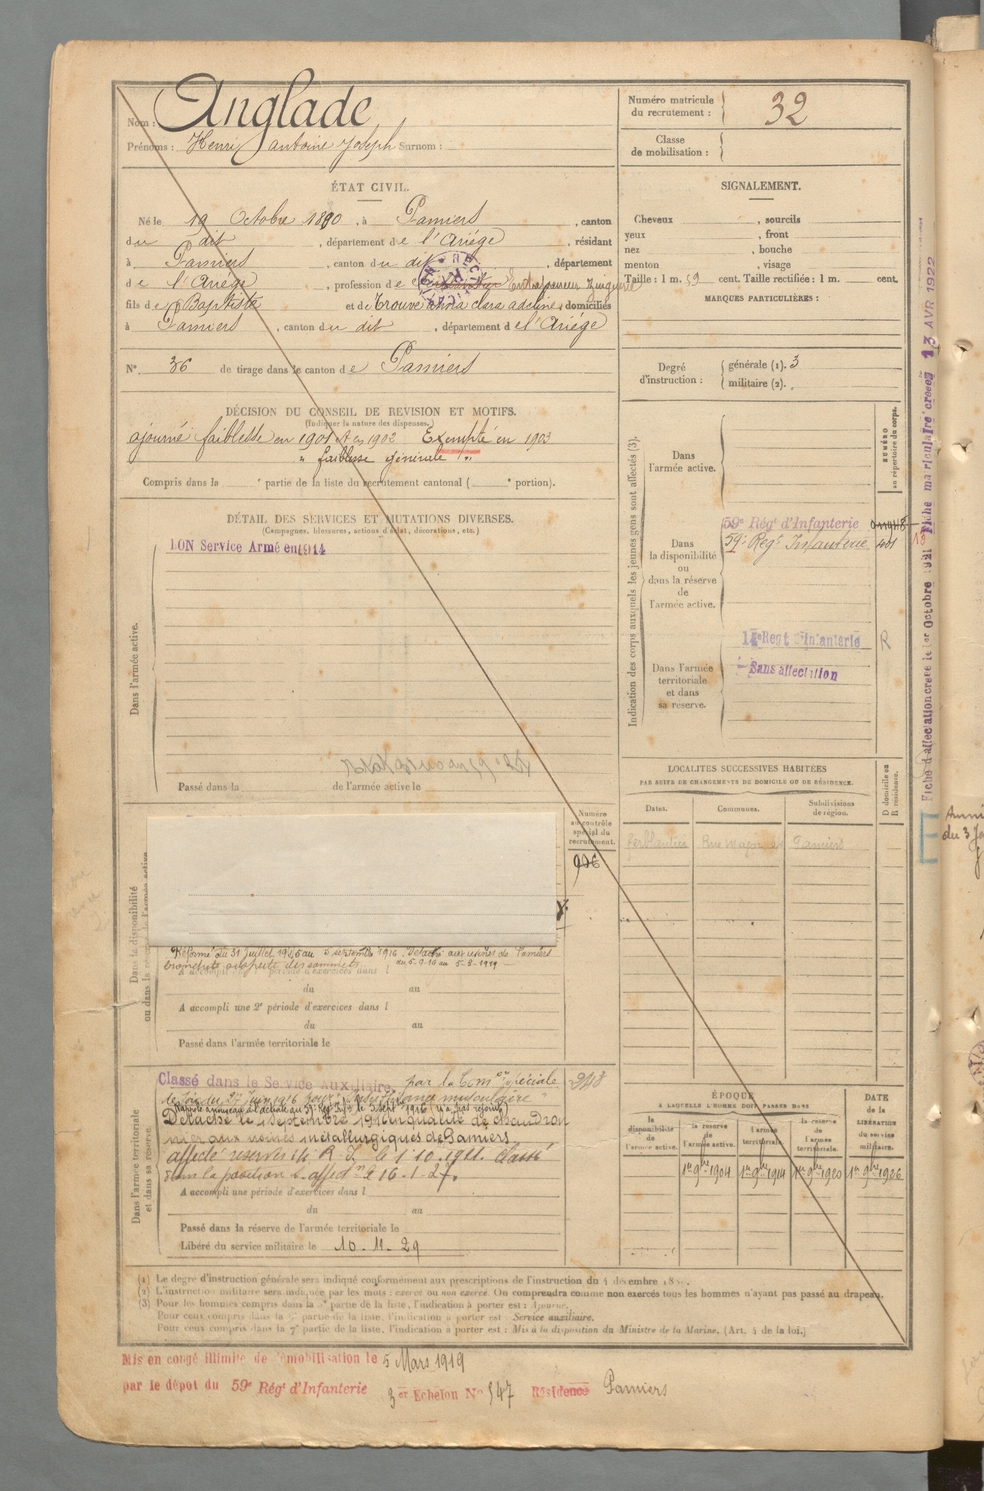 Nom : Anglade
Prénoms : Henri Antoine Joseph Surnom :
Numéro matricule du recrutement : 32
Classe de mobilisation :
ÉTAT CIVIL.
Né le 19 Octobre 1880, à Pamiers, canton
du dit, département de l'Ariège, résidant
à Pamiers, canton du dit, département
de l'Ariège, profession de Entrepreneur Zingueur
fils de Baptiste et de Trouvé Anna Clara Adeline, domiciliés
à Pamiers, canton du dit, département de l'Ariège
N° 36 de tirage dans le canton de Pamiers
SIGNALEMENT.
Cheveux , sourcils
yeux , front
nez , bouche
menton , visage
Taille : 1 m. 59 cent. Taille rectifiée : 1 m. cent.
MARQUES PARTICULIÈRES :
Degré d'instruction : générale (1). 3
militaire (2).
DÉCISION DU CONSEIL DE REVISION ET MOTIFS.
(Indiquer la nature des dispenses.)
ajourné faiblesse en 1901 et en 1902 Exempté en 1903
" faiblesse générale "
Compris dans la e partie de la liste du recrutement cantonal ( e portion).
DÉTAIL DES SERVICES ET MUTATIONS DIVERSES.
(Campagnes, blessures, actions d'éclat, décorations, etc.)
BON Service Armé en 1914
Dans l'armée active.
Passé dans la de l'armée active le
Indication des corps auxquels les jeunes gens sont affectés (3).
NUMÉRO au répertoire du corps.
Dans l'armée active.
Dans la disponibilité ou dans la réserve de l'armée active.
59e Régt d'Infanterie
59e Régt Infanterie
Dans l'armée territoriale et dans sa reserve.
14e Regt d'Infanterie
Sans affectation
R
LOCALITÉS SUCCESSIVES HABITÉES
PAR SUITE DE CHANGEMENTS DE DOMICILE OU DE RÉSIDENCE.
D domicile ou R résidence.
Dates. Communes. Subdivisions de région.
Pamiers
Numéro au contrôle spécial du recrutement.
926
Dans la disponibilité ou dans la réserve de l'armée active
Réformé du 31 Juillet 1915 au 5 septembre 1916. Détaché aux usines de Pamiers
bronchite suspecte des sommets du 5-9-16 au 5-3-1919
A accompli une 1e période d'exercices dans l
du au
A accompli une 2e période d'exercices dans l
du au
Passé dans l'armée territoriale le
Dans l'armée territoriale et dans sa réserve.
Classé dans le Service Auxiliaire par la Comon spéciale
de Foix du 27 Juin 1916 pour "insuffisance musculaire"
Détaché le 1 Septembre 1916 en qualité de
aux usines métallurgiques de Pamiers
affecté reserves 14e R. I. le 1.10.1921. Classé
dans la position S. affon le 16-1-27.
A accompli une période d'exercices dans l
du au
Passé dans la réserve de l'armée territoriale le
Libéré du service militaire le 10-11-29
948
ÉPOQUE
A LAQUELLE L'HOMME DOIT PASSER DANS
la disponibilité de l'armée active. la reserve de l'armée active. l'armée territoriale. la reserve de l'armée territoriale.
DATE de la LIBÉRATION du service militaire.
1er 9bre 1904 1er 9bre 1914 1er 9bre 1920 1er 9bre 1926
(1) Le degré d'instruction générale sera indiqué conformément aux prescriptions de l'instruction du 4 décembre 1889.
(2) L'instruction militaire sera indiquée par les mots : exercé ou non exercé. On comprendra comme non exercés tous les hommes n'ayant pas passé au drapeau.
(3) Pour les hommes compris dans la partie de la liste, l'indication à porter est : Ajourné.
Pour ceux compris dans la partie de la liste, l'indication à porter est Service auxiliaire.
Pour ceux compris dans la 7e partie de la liste, l'indication à porter est : Mis à la disposition du Ministre de la Marine. (Art. 4 de la loi.)
Mis en congé illimité de démobilisation le 5 Mars 1919
par le dépot du 59e Régt d'Infanterie 3er Echelon N° 547 Résidence Pamiers
Fiche d'affectation créée le 1er Octobre 1921 Fiche matriculaire créée 13 AVR 1922